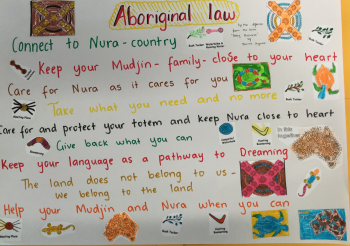 Aboriginal law
Connect to Nura - country
Keep your Mudjin - family - close to your heart
Care for Nura as it cares for you
Take what you need and no more
Care for and protect your totem and keep Nura close to heart
Give back what you can
Keep your language as a pathway to Dreaming
The land does not belong to us -
We belong to the land
Help your Mudjin and Nura when you can